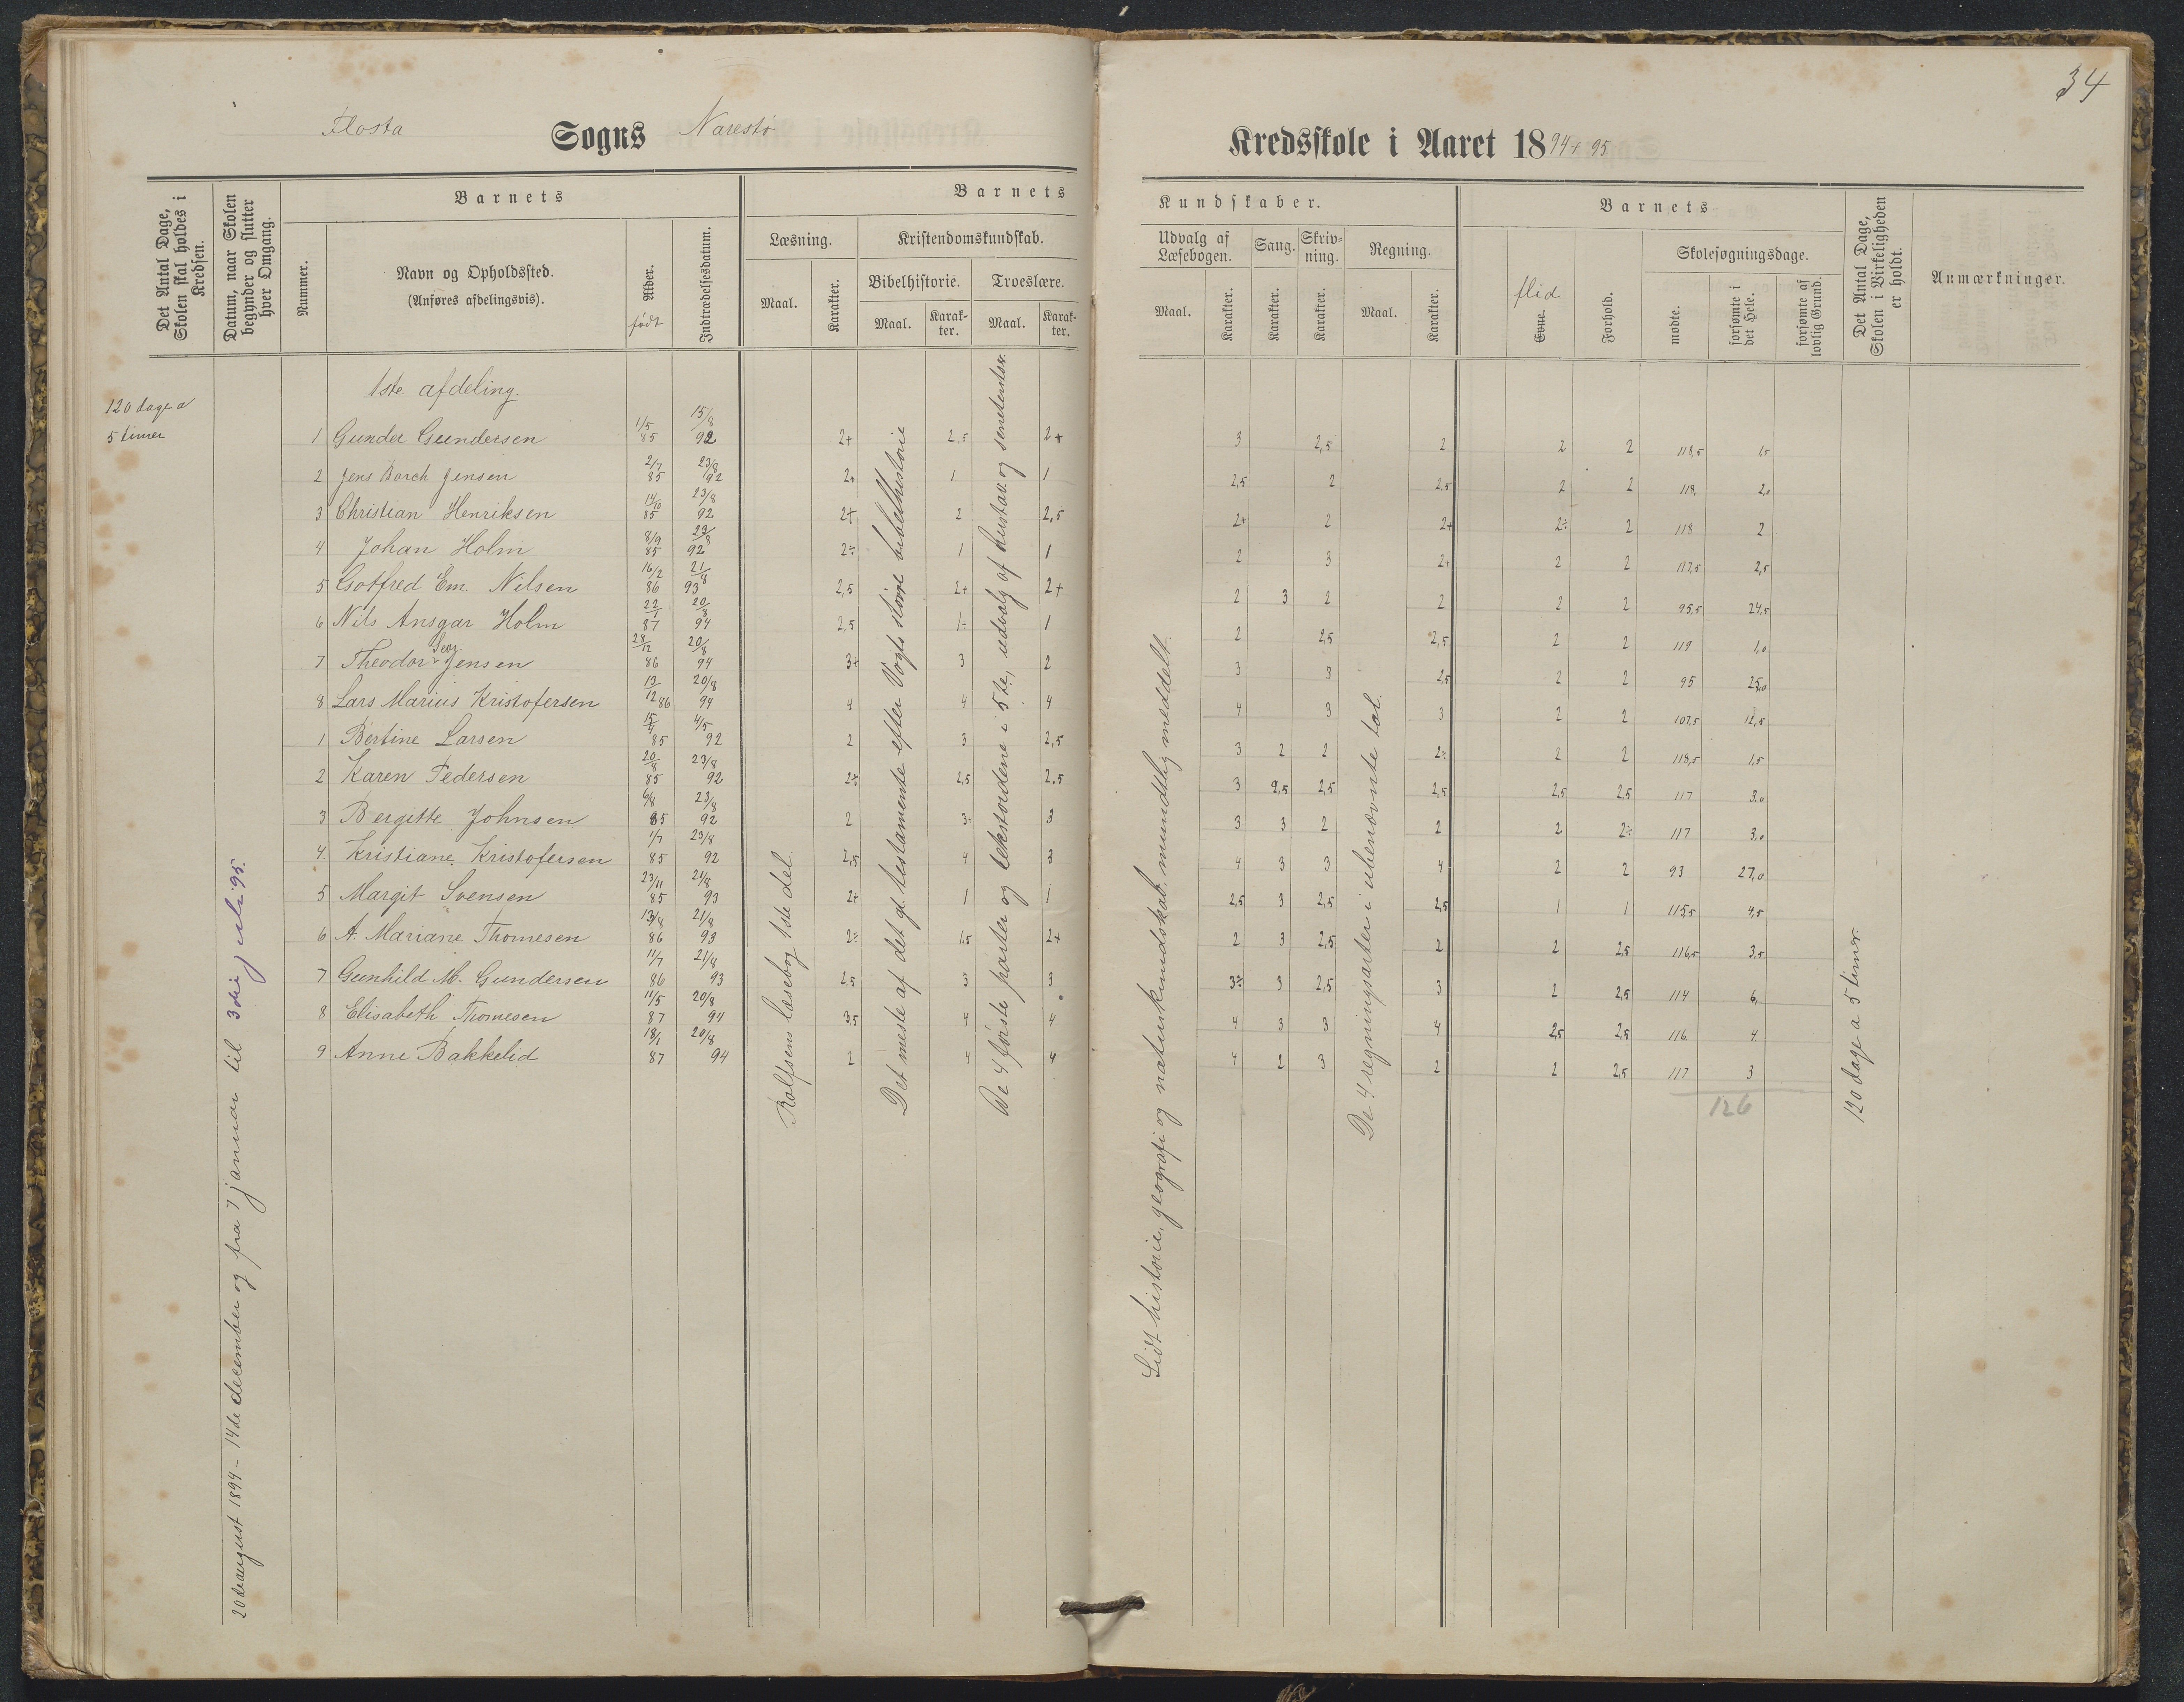 34
Flosta Sogns Narestö Kredsskole i Aaret 1894+95.
Det Antal Dage, Skolen skal holdes i Kredsen.
Datum, naar Skolen begynder og slutter hver Omgang.
Barnets
Nummer.
Navn og Opholdssted.
(Anføres afdelingsvis).
Alder.
født
Indtrædelsesdatum.
Barnets Kundskaber.
Læsning.
Maal.
Karakter.
Kristendomskundskab.
Bibelhistorie.
Maal.
Karakter.
Troeslære.
Maal.
Karakter.
Udvalg af Læsebogen.
Maal.
Karakter.
Sang.
Karakter.
Skrivning.
Karakter.
Regning.
Maal.
Karakter.
Barnets
flid
Evne.
Forhold.
Skolesøgningsdage.
mødte.
forsømte i det Hele.
forsømte af lovlig Grund.
Det Antal Dage, Skolen i Virkeligheden er holdt.
Anmærkninger.
120 dage a
5 timer
20de august 1894 - 14de december og fra 7 januar til 3die juli 95.
1ste afdeling.
1 Gunder Gundersen 1/5 85 15/8 92 2+ 2.5 2+ 3 2,5 2 2 2 118,5 1,5
2 Jens Borch Jensen 2/7 85 23/8 92 2+ 1 1 2,5 2 2,5 2 2 118, 2,0
3 Christian Henriksen 14/10 85 23/8 92 2+ 2 2.5 2+ 2 2+ 2÷ 2 118 2
4 Johan Holm 8/9 85 23/8 92 2÷ 1 1 2 3 2+ 2 2 117,5 2,5
5 Gotfred Em. Nilsen 16/2 86 21/8 93 2,5 2+ 2+ 2 3 2 2 2 2 95,5 24,5
6 Nils Ansgar Holm 22/1 87 20/8 94 2,5 1÷ 1 2 2,5 2,5 2 2 119 1,0
7 Theodor Jensen 28/12 86 20/8 94 3+ 3 2 3 3 2,5 2 2 95 25,0
8 Lars Marius Kristofersen 13/12 86 20/8 94 4 4 4 4 3 3 2 2 107,5 12,5
1 Bertine Larsen 15/4 85 4/5 92 2 3 2,5 3 2 2 2÷ 2 2 118,5 1,5
2 Karen Pedersen 20/8 85 23/8 92 2÷ 2,5 2.5 3 2,5 2,5 2,5 2,5 2,5 117 3,0
3 Bergitte Johnsen 6/8 85 23/8 92 2 3+ 3 3 3 2 2 2 2÷ 117 3,0
4. Kristiane Kristofersen 1/7 85 23/8 92 2,5 4 3 4 3 3 4 2 2 93 27,0
5 Margit Svensen 23/11 85 21/8 93 2+ 1 1 2,5 3 2,5 2,5 1 1 115,5 4,5
6 A. Mariane Thomesen 13/8 86 21/8 93 2÷ 1,5 2+ 2 3 2,5 2 2 2,5 116,5 3,5
7 Gunhild M. Gundersen 11/7 86 21/8 93 2,5 3 3 3÷ 3 2,5 3 2 2,5 114 6,
8 Elisabeth Thomesen 11/5 87 20/8 94 3,5 4 4 4 3 3 4 2,5 2,5 116 4.
9 Anne Bakkelid 18/1 87 20/8 94 2 4 4 4 2 3 2 2 2,5 117 3
126
Rolfsens læsebog 1ste del.
Det meste af det gl. testamente efter Vogts större bibelhistorie
De 4 første parter og tekstordene i 5te, udvalg af herstav. og senetenser.
Lidt historie, geografi og naturkundskab, mundtlig meddelt.
De 4 regningsarter i ubenævnte tal.
120 dage a 5 timer.